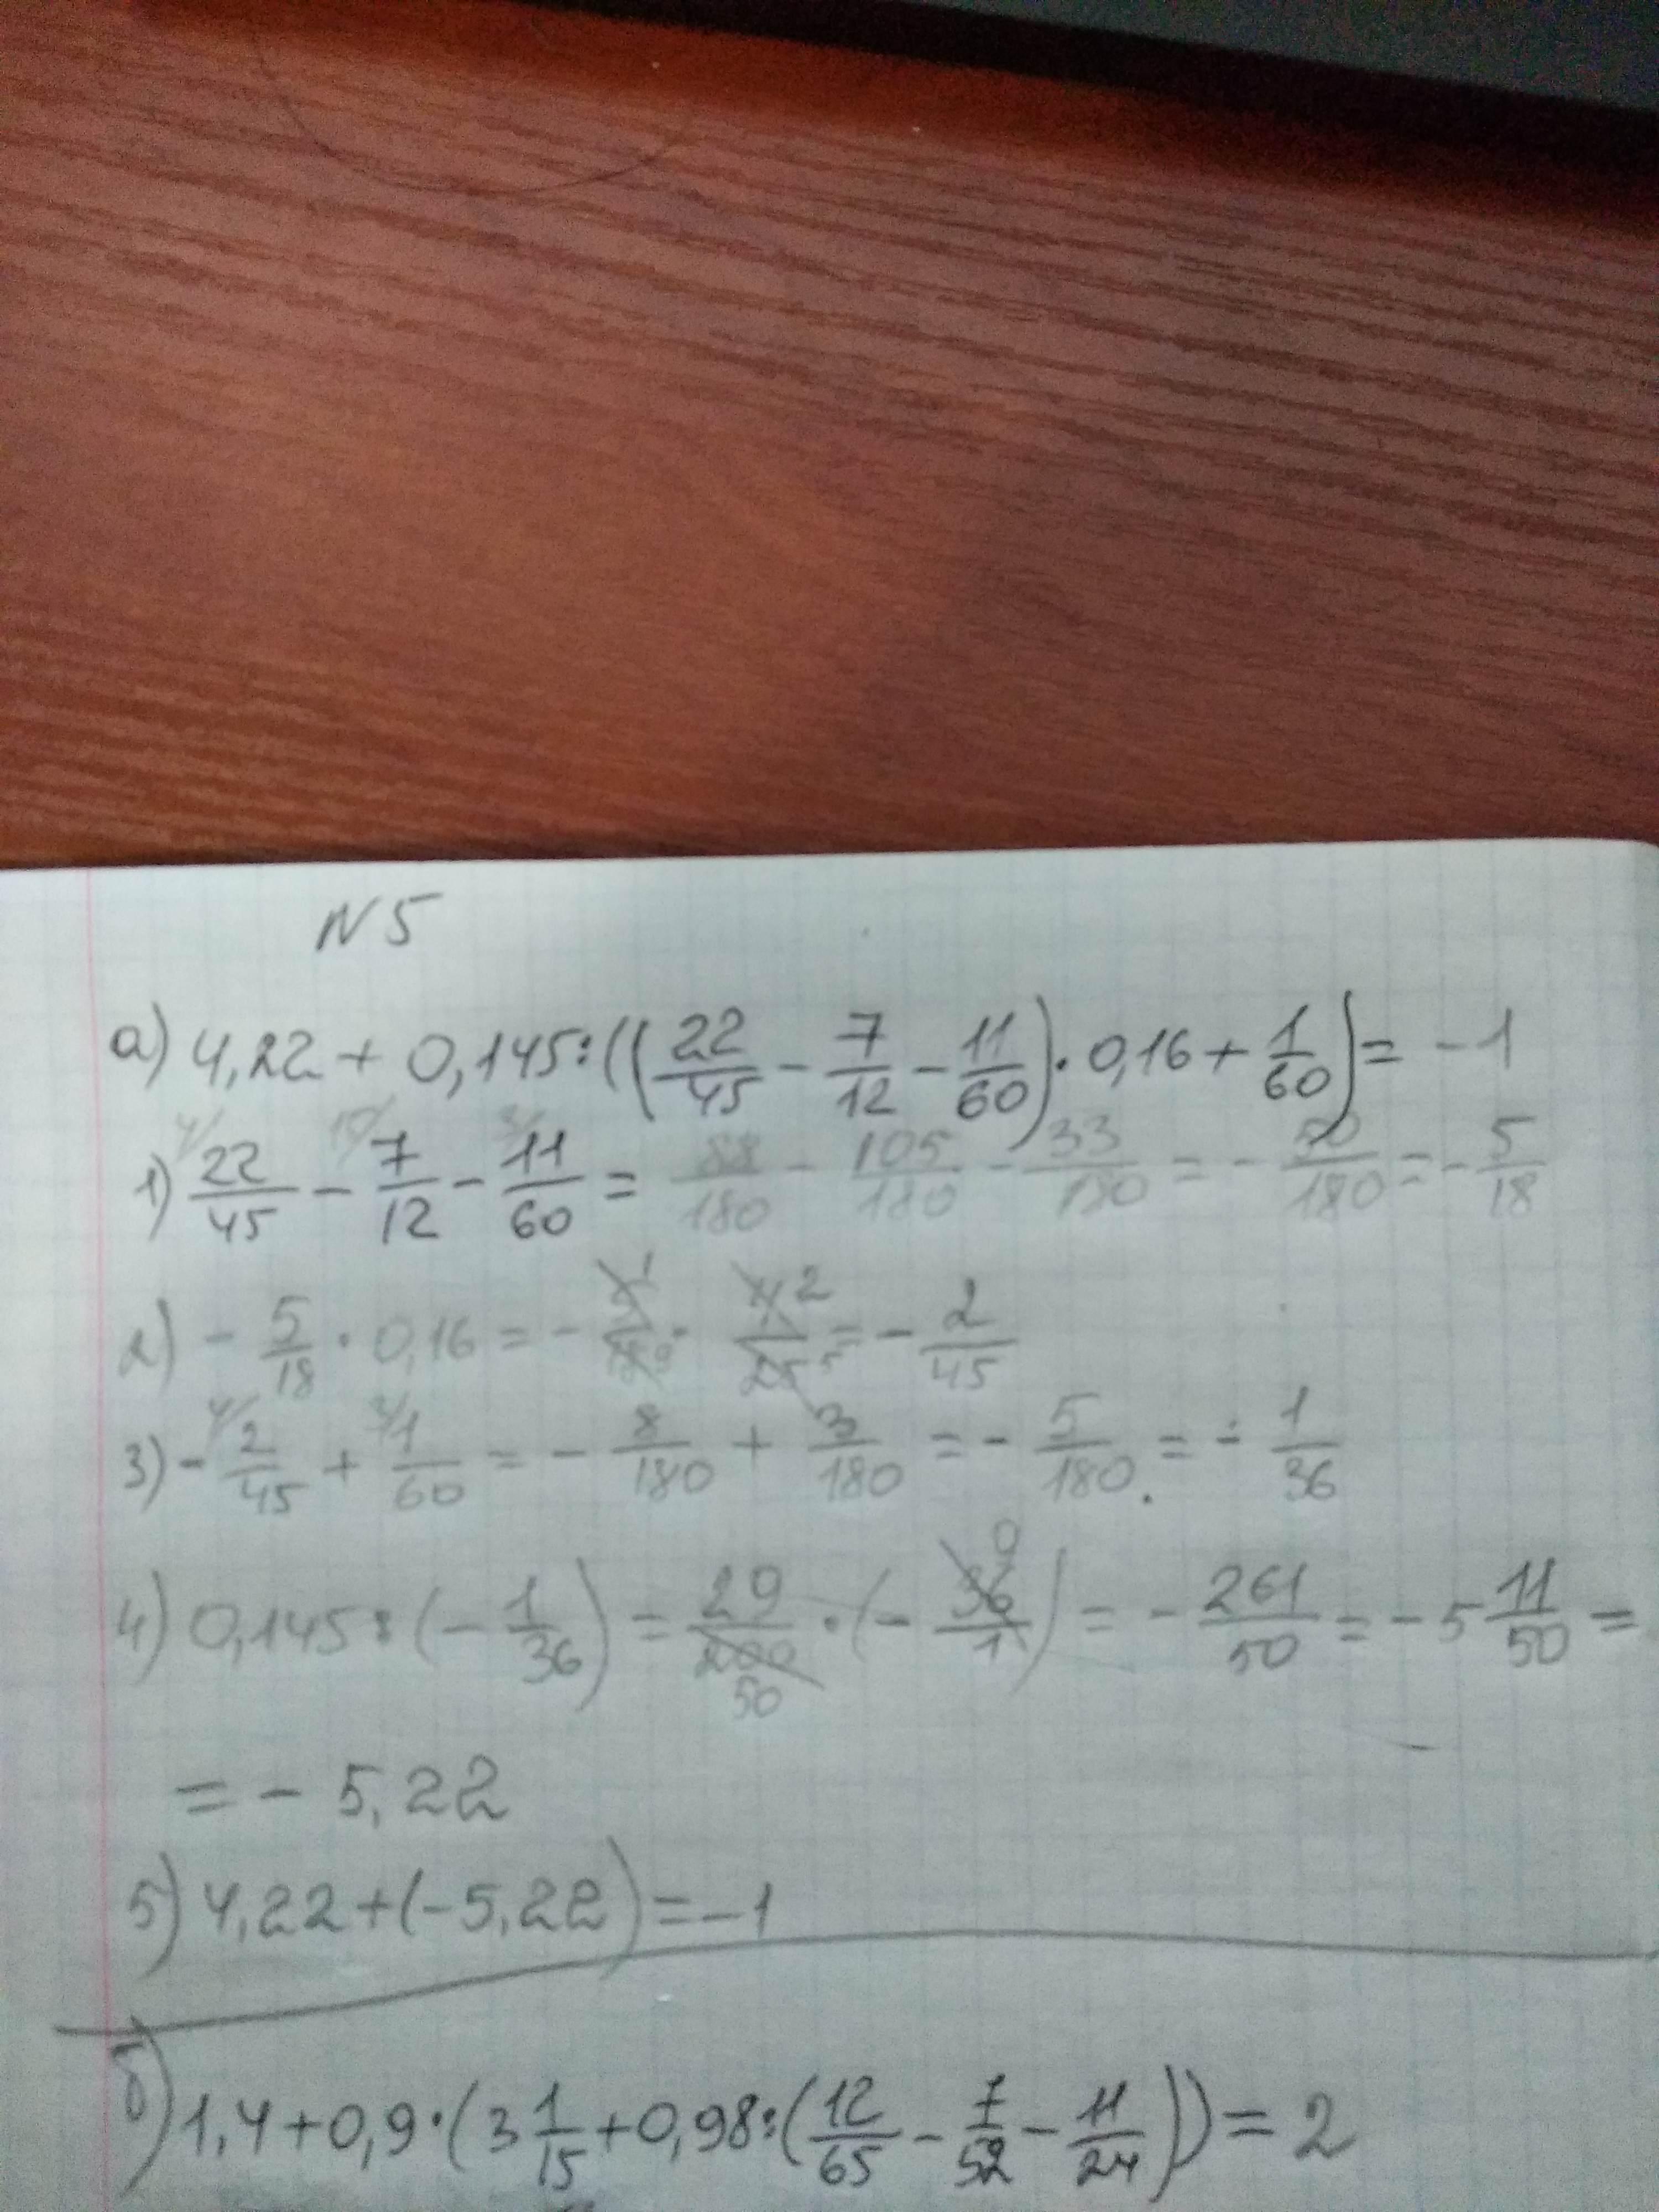 N5
а) 4,22 + 0,145 : ((22/45 - 7/12 - 11/60) · 0,16 + 1/60) = -1
1) 22/45 - 7/12 - 11/60 = 88/180 - 105/180 - 33/180 = - 50/180 = - 5/18
2) - 5/18 · 0,16 = - 5/18 · 4/25 = - 2/45
3) - 2/45 + 1/60 = - 8/180 + 3/180 = - 5/180 = - 1/36
4) 0,145 : (- 1/36) = 29/200 · (- 36/1) = - 261/50 = - 5 11/50 =
= - 5,22
5) 4,22 + (-5,22) = -1
б) 1,4 + 0,9 · (3 1/15 + 0,98 : (12/65 - 7/52 - 11/24)) = 2